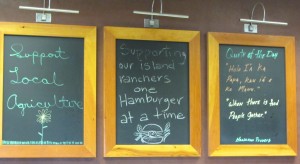 Support
Local
Agriculture
Supporting
our island
ranchers
one
Hamburger
at a time
Quote of the Day
"Hele In Ka
"When there is food
People Gather."
Hawaiian Proverb